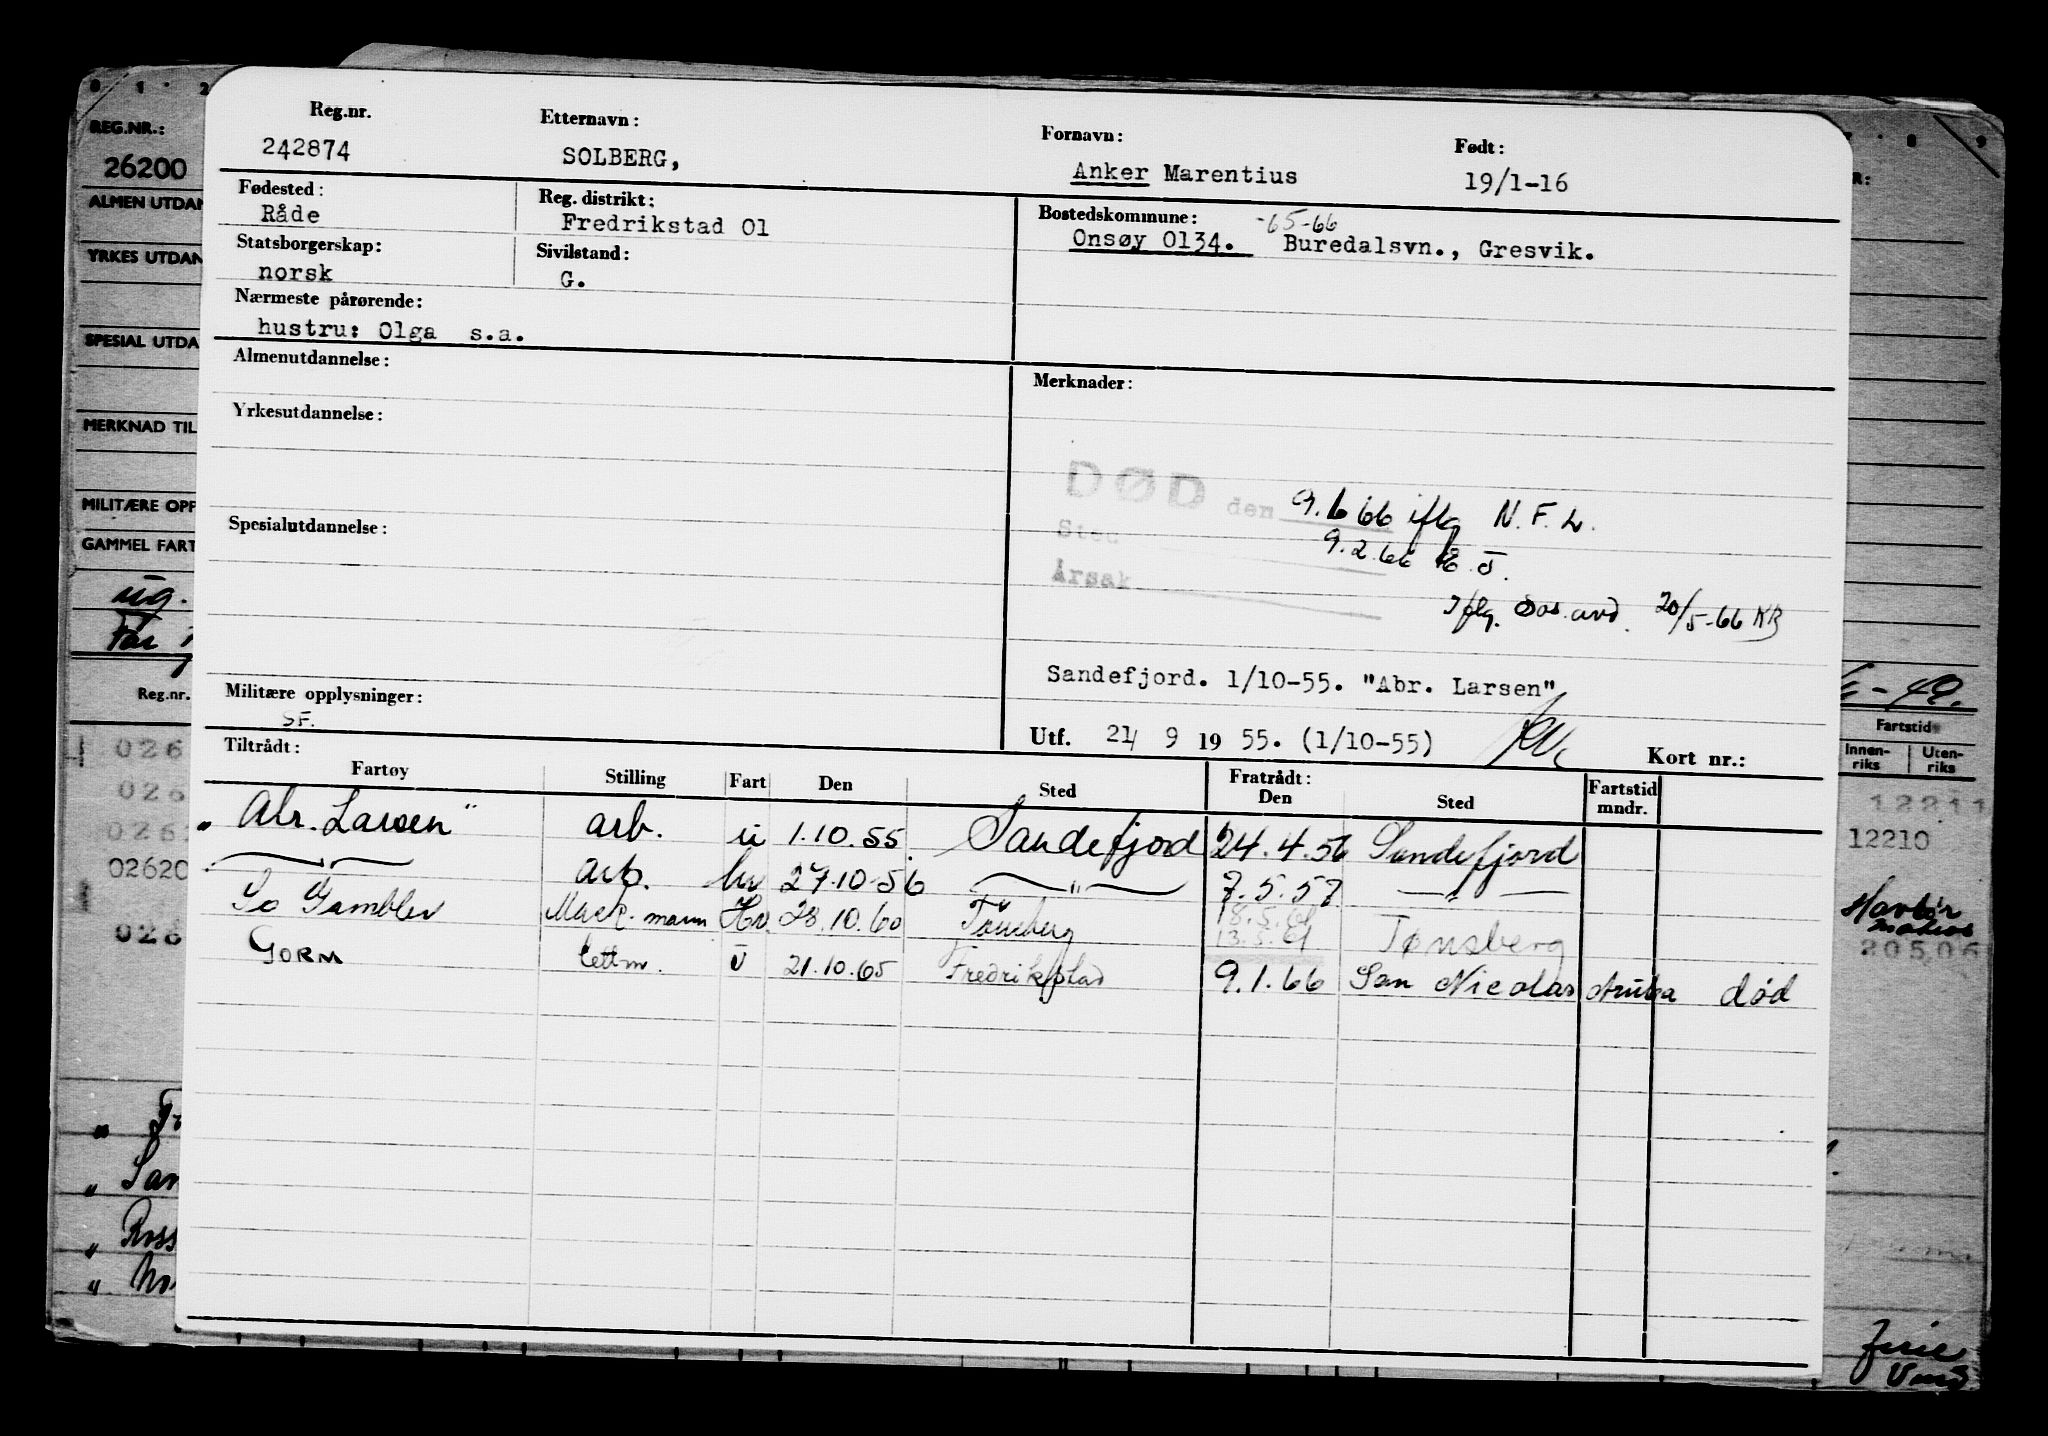 Reg.nr. Etternavn: Fornavn: Født:
242874 SOLBERG, Anker Marentius 19/1-16
Fødested: Reg. distrikt: Bostedskommune: -65-66
Råde Fredrikstad 01 Onsøy 0134. Buredalsvn., Gresvik.
Statsborgerskap: Sivilstand:
norsk G.
Nærmeste pårørende:
hustru: Olga s.a.
Almenutdannelse: Merknader:
Yrkesutdannelse:
DØD den 9.1.66 iflg N.F.L.
Spesialutdannelse: Sted 9.2.66
Årsak
Iflg. Sos. avd. 20/5-66 KB
Sandefjord. 1/10-55. "Abr. Larsen"
Militære opplysninger:
SF.
Utf. 21/ 9 19 55. (1/10-55) Kort nr.:
Tiltrådt: Fratrådt:
Fartøy Stilling Fart Den Sted Den Sted Fartstid mndr.
"Abr. Larsen" arb. u 1.10.55. Sandefjord 24.4.56 Sandefjord
—"— arb. hv 27.10.56 —"— 7.5.57 —"—
So Gambler Mask.mann Hv. 28.10.60 Tønsberg 18.5.61 13.5.61 Tønsberg
GORM lettm. U 21.10.65 Fredrikstad 9.1.66 San Nicolas Aruba død
REG.NR.:
26200
ALMEN UTDAN
YRKES UTDAN
SPESIAL UTDA
MERKNAD TIL
MILITÆRE OPP
GAMMEL FART
ug.
Reg.nr.
026
026
026
02620
026
" San
" Ross
Fartstid
Innen-riks Uten-riks
12211
12210
20506